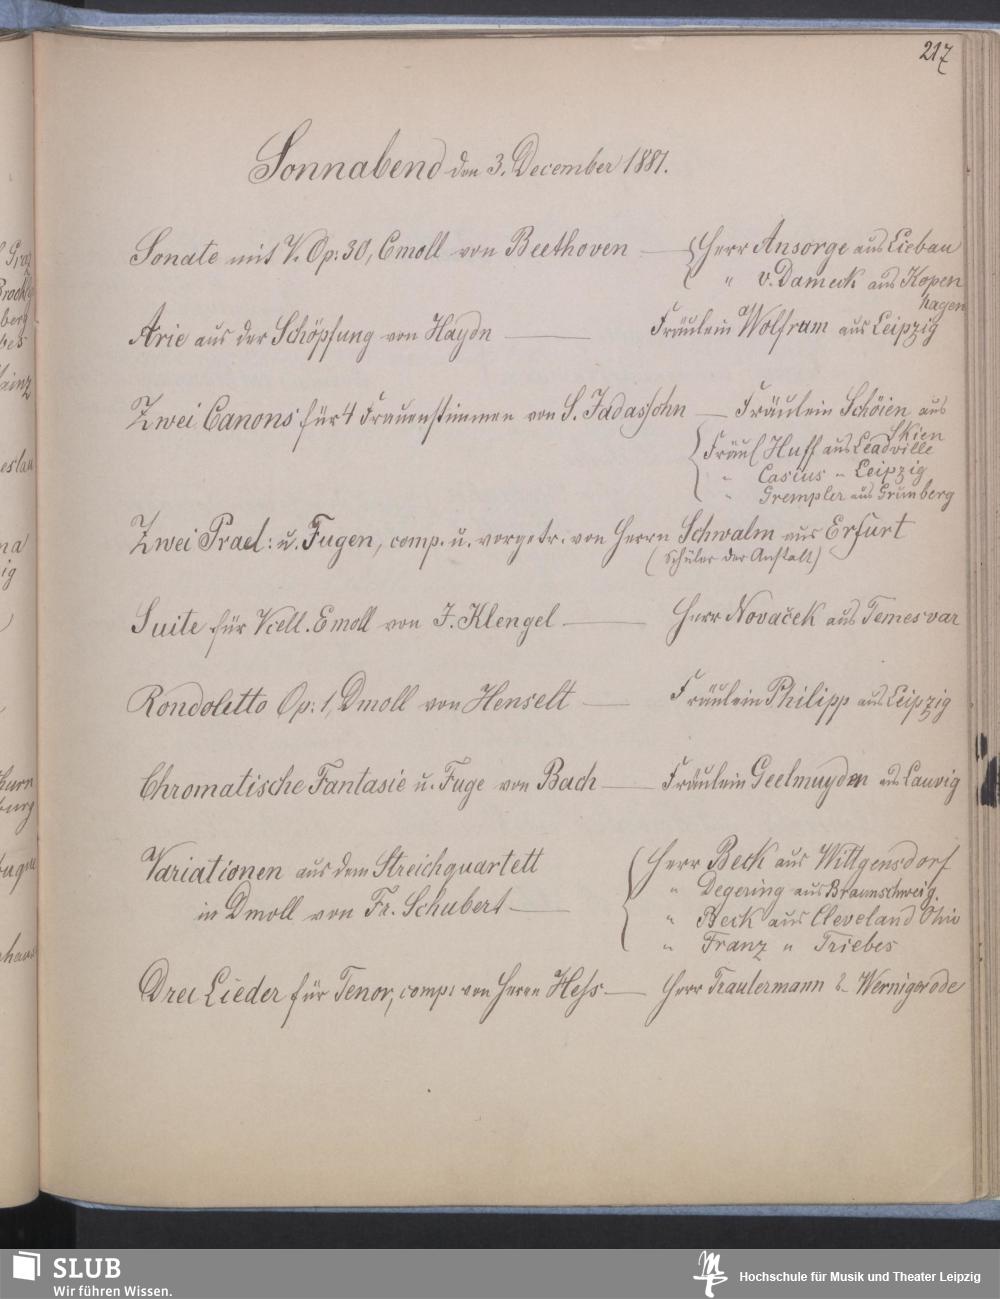 217
Sonnabend den 3. December 1881.
Sonate mit V. Op: 30, Cmoll von Beethoven — Herr Ansorge aus Liebau
" v. Dameck aus Kopen
hagen
Arie aus der Schöpfung von Haydn — Fräulein Wolfram aus Leipzig
Zwei Canons für 4 Frauenstimmen von S. Jadassohn — Fräulein Schöien aus
Skien
Fräul Huff aus Leadville
" Casius " Leipzig
" Grempler aus Grünberg
Zwei Prael: u. Fugen, comp. u. vorgetr. von Herrn Schwalm aus Erfurt
(Schüler der Anstalt)
Suite für Vcell. Emoll von J. Klengel — Herr Novaček aus Temesvar
Rondoletto Op: 1, Dmoll von Henselt — Fräulein Philipp aus Leipzig
Chromatische Fantasie u. Fuge von Bach — Fräulein Geelmuyden aus Laurvig
Variationen aus dem Streichquartett Herr Beck aus Wittgensdorf
" Degering aus Braunschweig.
in Dmoll von Fr. Schubert — " Beck aus Cleveland Ohio
" Franz " Triebes
Drei Lieder für Tenor, comp: von Herrn Hess — Herr Trautermann a. Wernigerode
SLUB
Wir führen Wissen.
Hochschule für Musik und Theater Leipzig